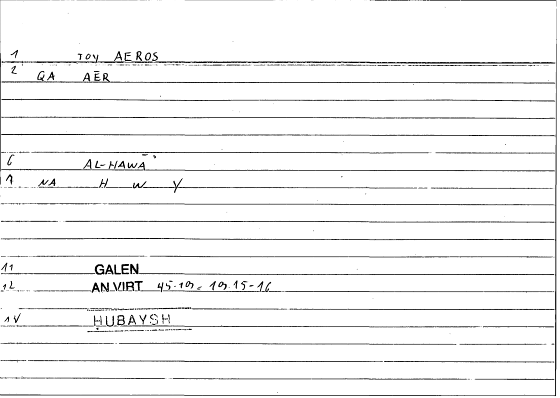 1 τογ AEROS
2 QA AĒR
6 AL-HAWĀ'
7 NA H W Y
11 GALEN
12 AN.VIRT 45.19 = 19.15-16
14 ḤUBAYSH